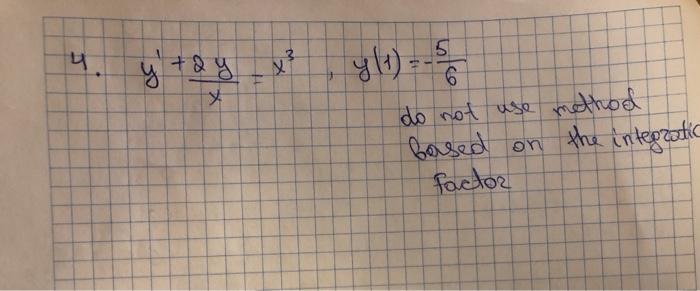 4. y' + 2y/x = x³, y(1) = -5/6
do not use method
based on the integratio
factor